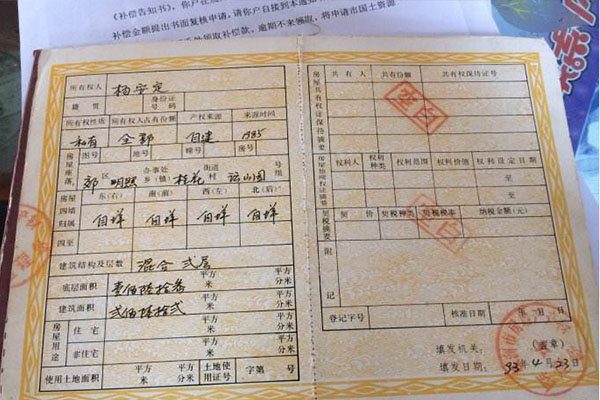 《补偿告知书》，你户在
补偿金额提出书面复核申请，请你户自接到本通知
领取补偿款。逾期不来领取，将申请市国土资源
所有权人 杨安定
籍贯 身份证号码
所有权性质 所有权人占有份额 产权来源 来源时间
私有 全部 自建 1985
房屋座落 图号 地号 幢号 房号
郊区 明照 办事处 乡(镇) 桂花 街道 村 号 组
房屋四墙归属 东(右) 南(前) 西(左) 北(后)
自墙 自墙 自墙 自墙
四至
建筑结构及层数 混合 弍层
底层面积 壹佰陆拾叁 平方米 平方分米
建筑面积 弍佰陆拾弍 平方米 平方分米
房屋用途 住宅 平方米 平方分米
非住宅 平方米 平方分米
使用土地面积 平方米 平方分米 土地使用证号 字第 号
房屋共有权保持证摘要 共有人 共有份额 共有权保持证号
空白
房屋他项权证摘要 权利人 权利种类 权利范围 权利价值 权利设定日期
至
至
契税摘要 契价 契税种类 契税税率 纳税金额(元)
空白
附记
登记字号 核准日期 年 月 日
填发机关： (盖章)
填发日期： 93年4月23日